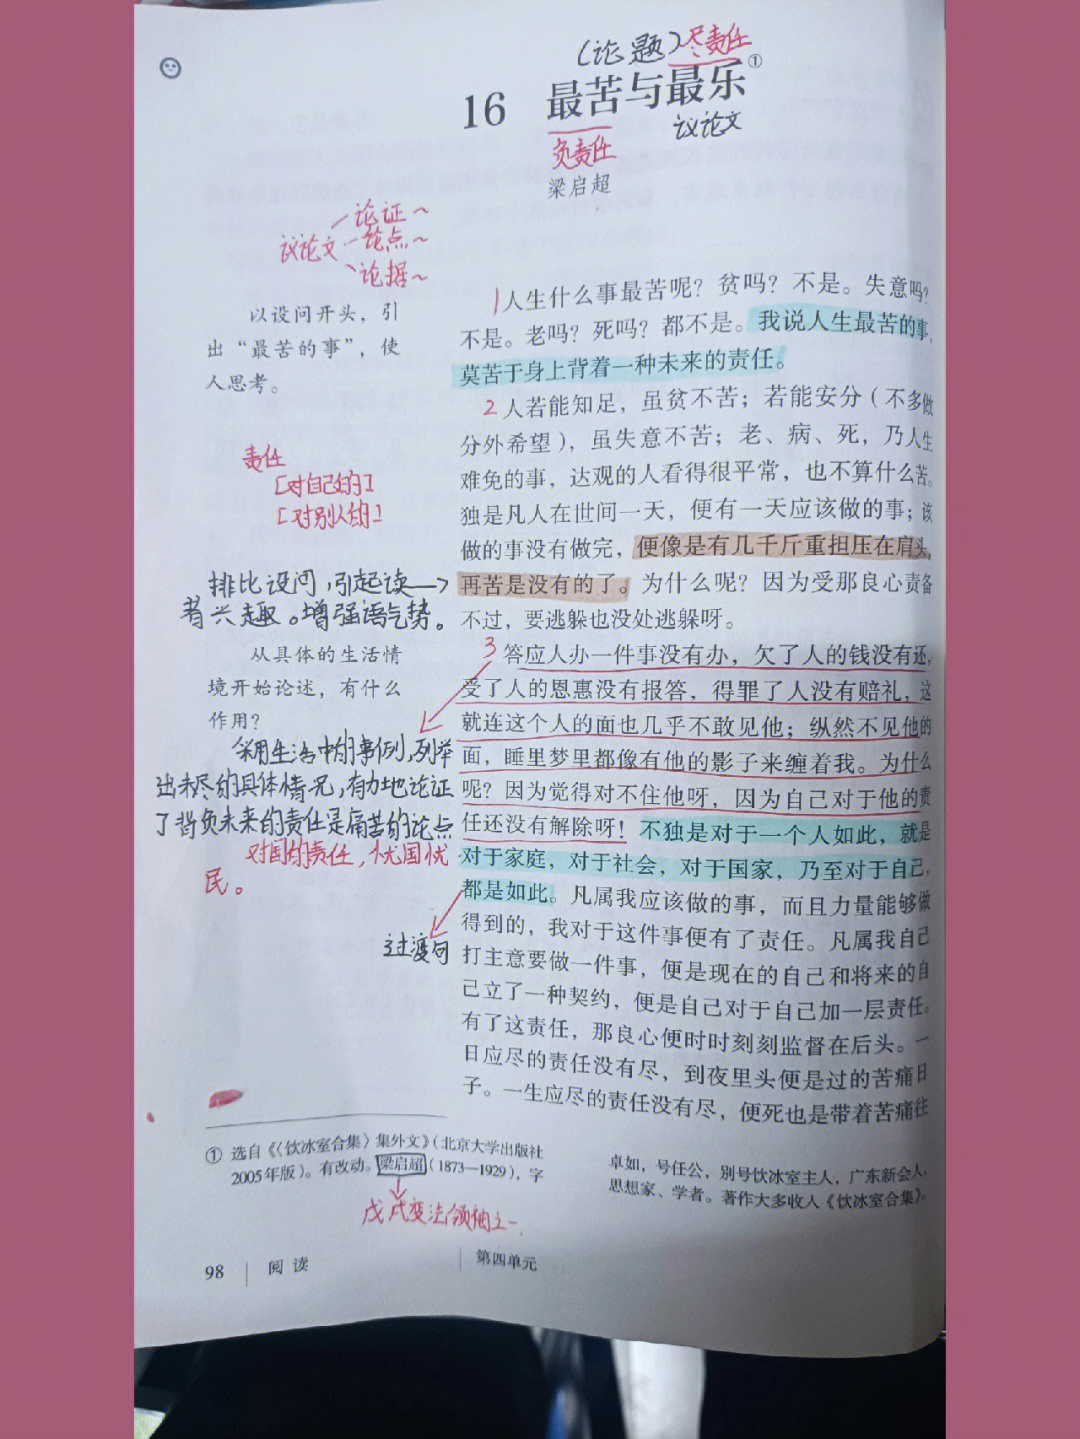 (论题)尽责任
16 最苦与最乐①
议论文
负责任
梁启超
论证~
议论文 论点~
论据~
以设问开头，引
出“最苦的事”，使
人思考。
1人生什么事最苦呢？贫吗？不是。失意吗？
不是。老吗？死吗？都不是。我说人生最苦的事，
莫苦于身上背着一种未来的责任。
2人若能知足，虽贫不苦；若能安分（不多做
分外希望），虽失意不苦；老、病、死，乃人生
难免的事，达观的人看得很平常，也不算什么苦。
独是凡人在世间一天，便有一天应该做的事；该
做的事没有做完，便像是有几千斤重担压在肩头，
再苦是没有的了。为什么呢？因为受那良心责备
不过，要逃躲也没处逃躲呀。
责任
[对自己的]
[对别人的]
排比设问，引起读
者兴趣。增强语气势。
从具体的生活情
境开始论述，有什么
作用？
采用生活中的事例，列举
出未尽的具体情况，有力地论证
了背负未来的责任是痛苦的论点
对国的责任，忧国忧
民。
过渡句
3答应人办一件事没有办，欠了人的钱没有还，
受了人的恩惠没有报答，得罪了人没有赔礼，这
就连这个人的面也几乎不敢见他；纵然不见他的
面，睡里梦里都像有他的影子来缠着我。为什么
呢？因为觉得对不住他呀，因为自己对于他的责
任还没有解除呀！不独是对于一个人如此，就是
对于家庭，对于社会，对于国家，乃至对于自己，
都是如此。凡属我应该做的事，而且力量能够做
得到的，我对于这件事便有了责任。凡属我自己
打主意要做一件事，便是现在的自己和将来的自
己立了一种契约，便是自己对于自己加一层责任。
有了这责任，那良心便时时刻刻监督在后头。一
日应尽的责任没有尽，到夜里头便是过的苦痛日
子。一生应尽的责任没有尽，便死也是带着苦痛往
① 选自《〈饮冰室合集〉集外文》（北京大学出版社
2005年版）。有改动。梁启超（1873—1929），字
卓如，号任公，别号饮冰室主人，广东新会人，
思想家、学者。著作大多收入《饮冰室合集》。
戊戌变法领袖之一
98 阅读
第四单元